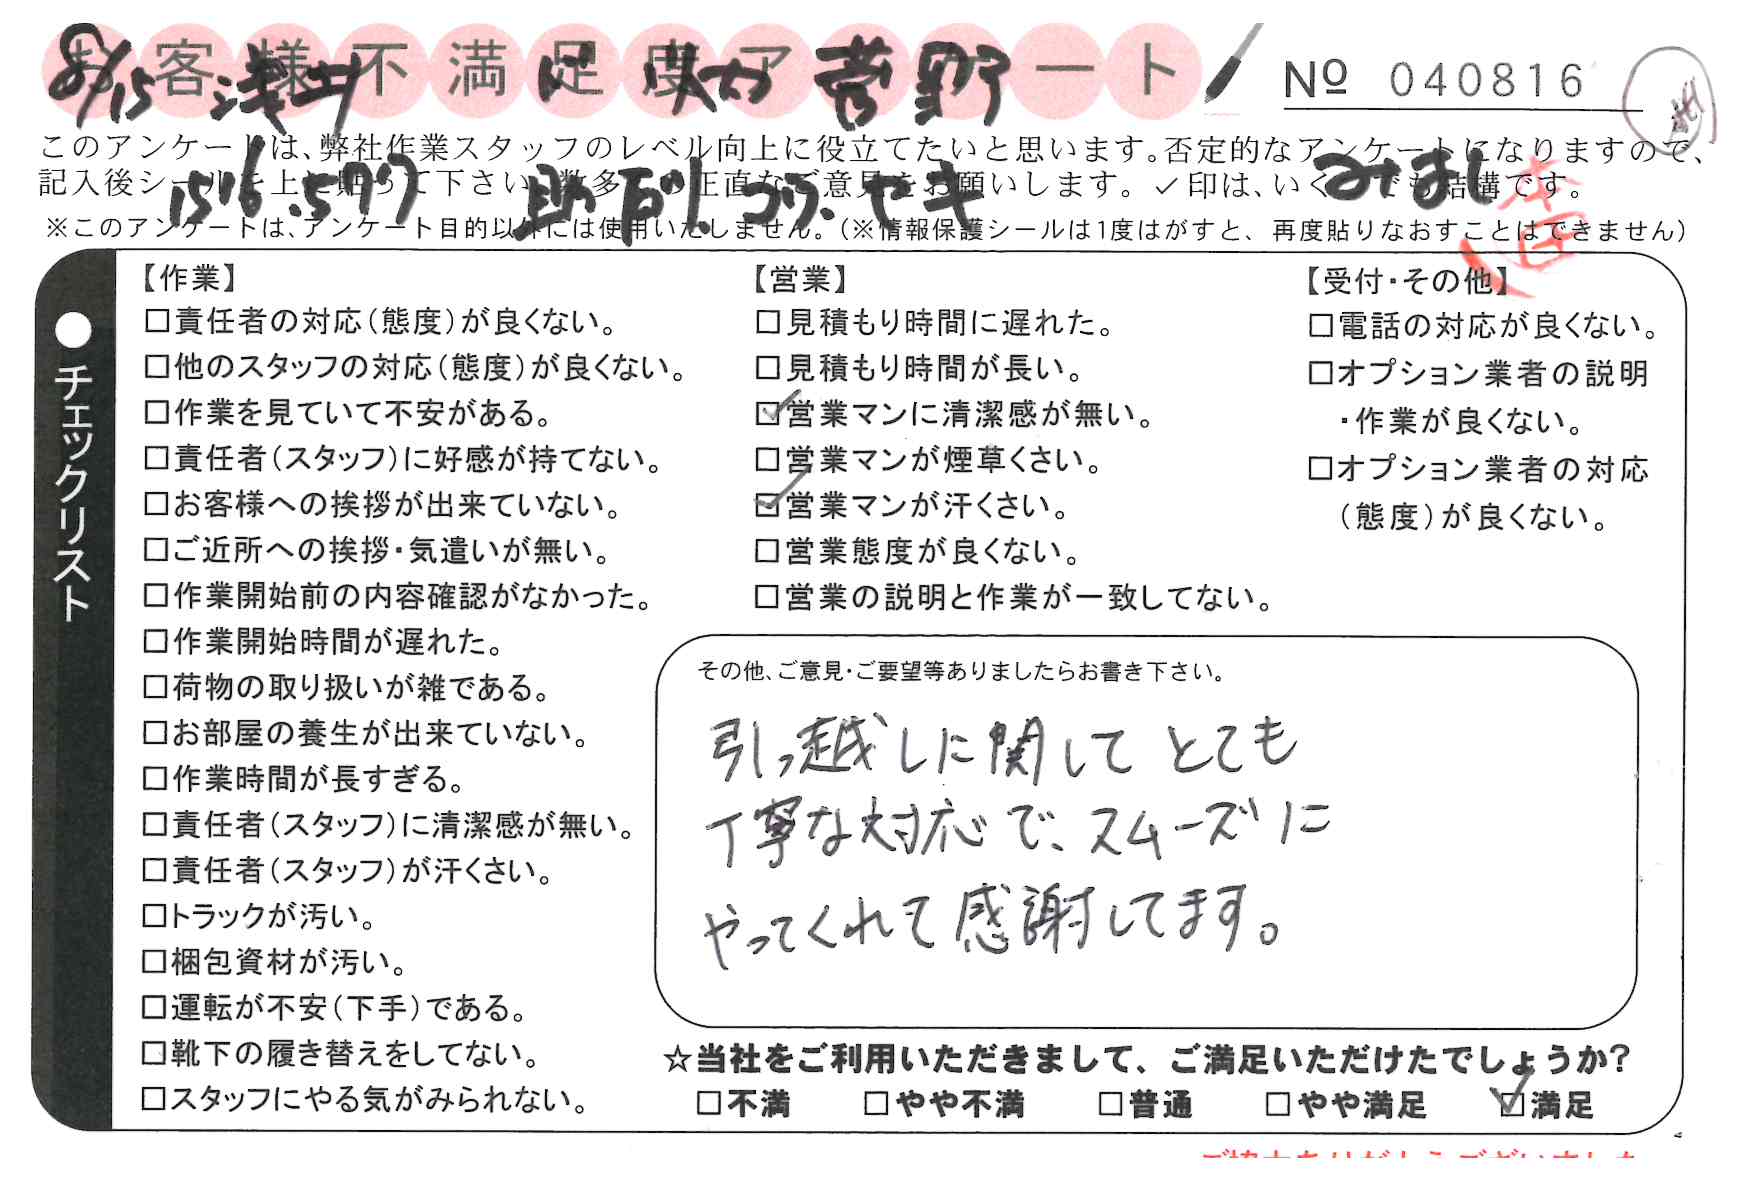 お客様不満足度アンケート
8/15 浅井 菅野
№ 040816
このアンケートは、弊社作業スタッフのレベル向上に役立てたいと思います。否定的なアンケートになりますので、
記入後シールを上に貼って下さい。数多くの正直なご意見をお願いします。✓印は、いくつでも結構です。
※このアンケートは、アンケート目的以外には使用いたしません。(※情報保護シールは1度はがすと、再度貼りなおすことはできません)
●チェックリスト
【作業】
□責任者の対応(態度)が良くない。
□他のスタッフの対応(態度)が良くない。
□作業を見ていて不安がある。
□責任者(スタッフ)に好感が持てない。
□お客様への挨拶が出来ていない。
□ご近所への挨拶・気遣いが無い。
□作業開始前の内容確認がなかった。
□作業開始時間が遅れた。
□荷物の取り扱いが雑である。
□お部屋の養生が出来ていない。
□作業時間が長すぎる。
□責任者(スタッフ)に清潔感が無い。
□責任者(スタッフ)が汗くさい。
□トラックが汚い。
□梱包資材が汚い。
□運転が不安(下手)である。
□靴下の履き替えをしてない。
□スタッフにやる気がみられない。
【営業】
□見積もり時間に遅れた。
□見積もり時間が長い。
☑営業マンに清潔感が無い。
□営業マンが煙草くさい。
☑営業マンが汗くさい。
□営業態度が良くない。
□営業の説明と作業が一致してない。
【受付・その他】
□電話の対応が良くない。
□オプション業者の説明
・作業が良くない。
□オプション業者の対応
(態度)が良くない。
その他、ご意見・ご要望等ありましたらお書き下さい。
引っ越しに関してとても
丁寧な対応で、スムーズに
やってくれて感謝してます。
☆当社をご利用いただきまして、ご満足いただけたでしょうか?
□不満 □やや不満 □普通 □やや満足 ☑満足
ご協力ありがとうございました